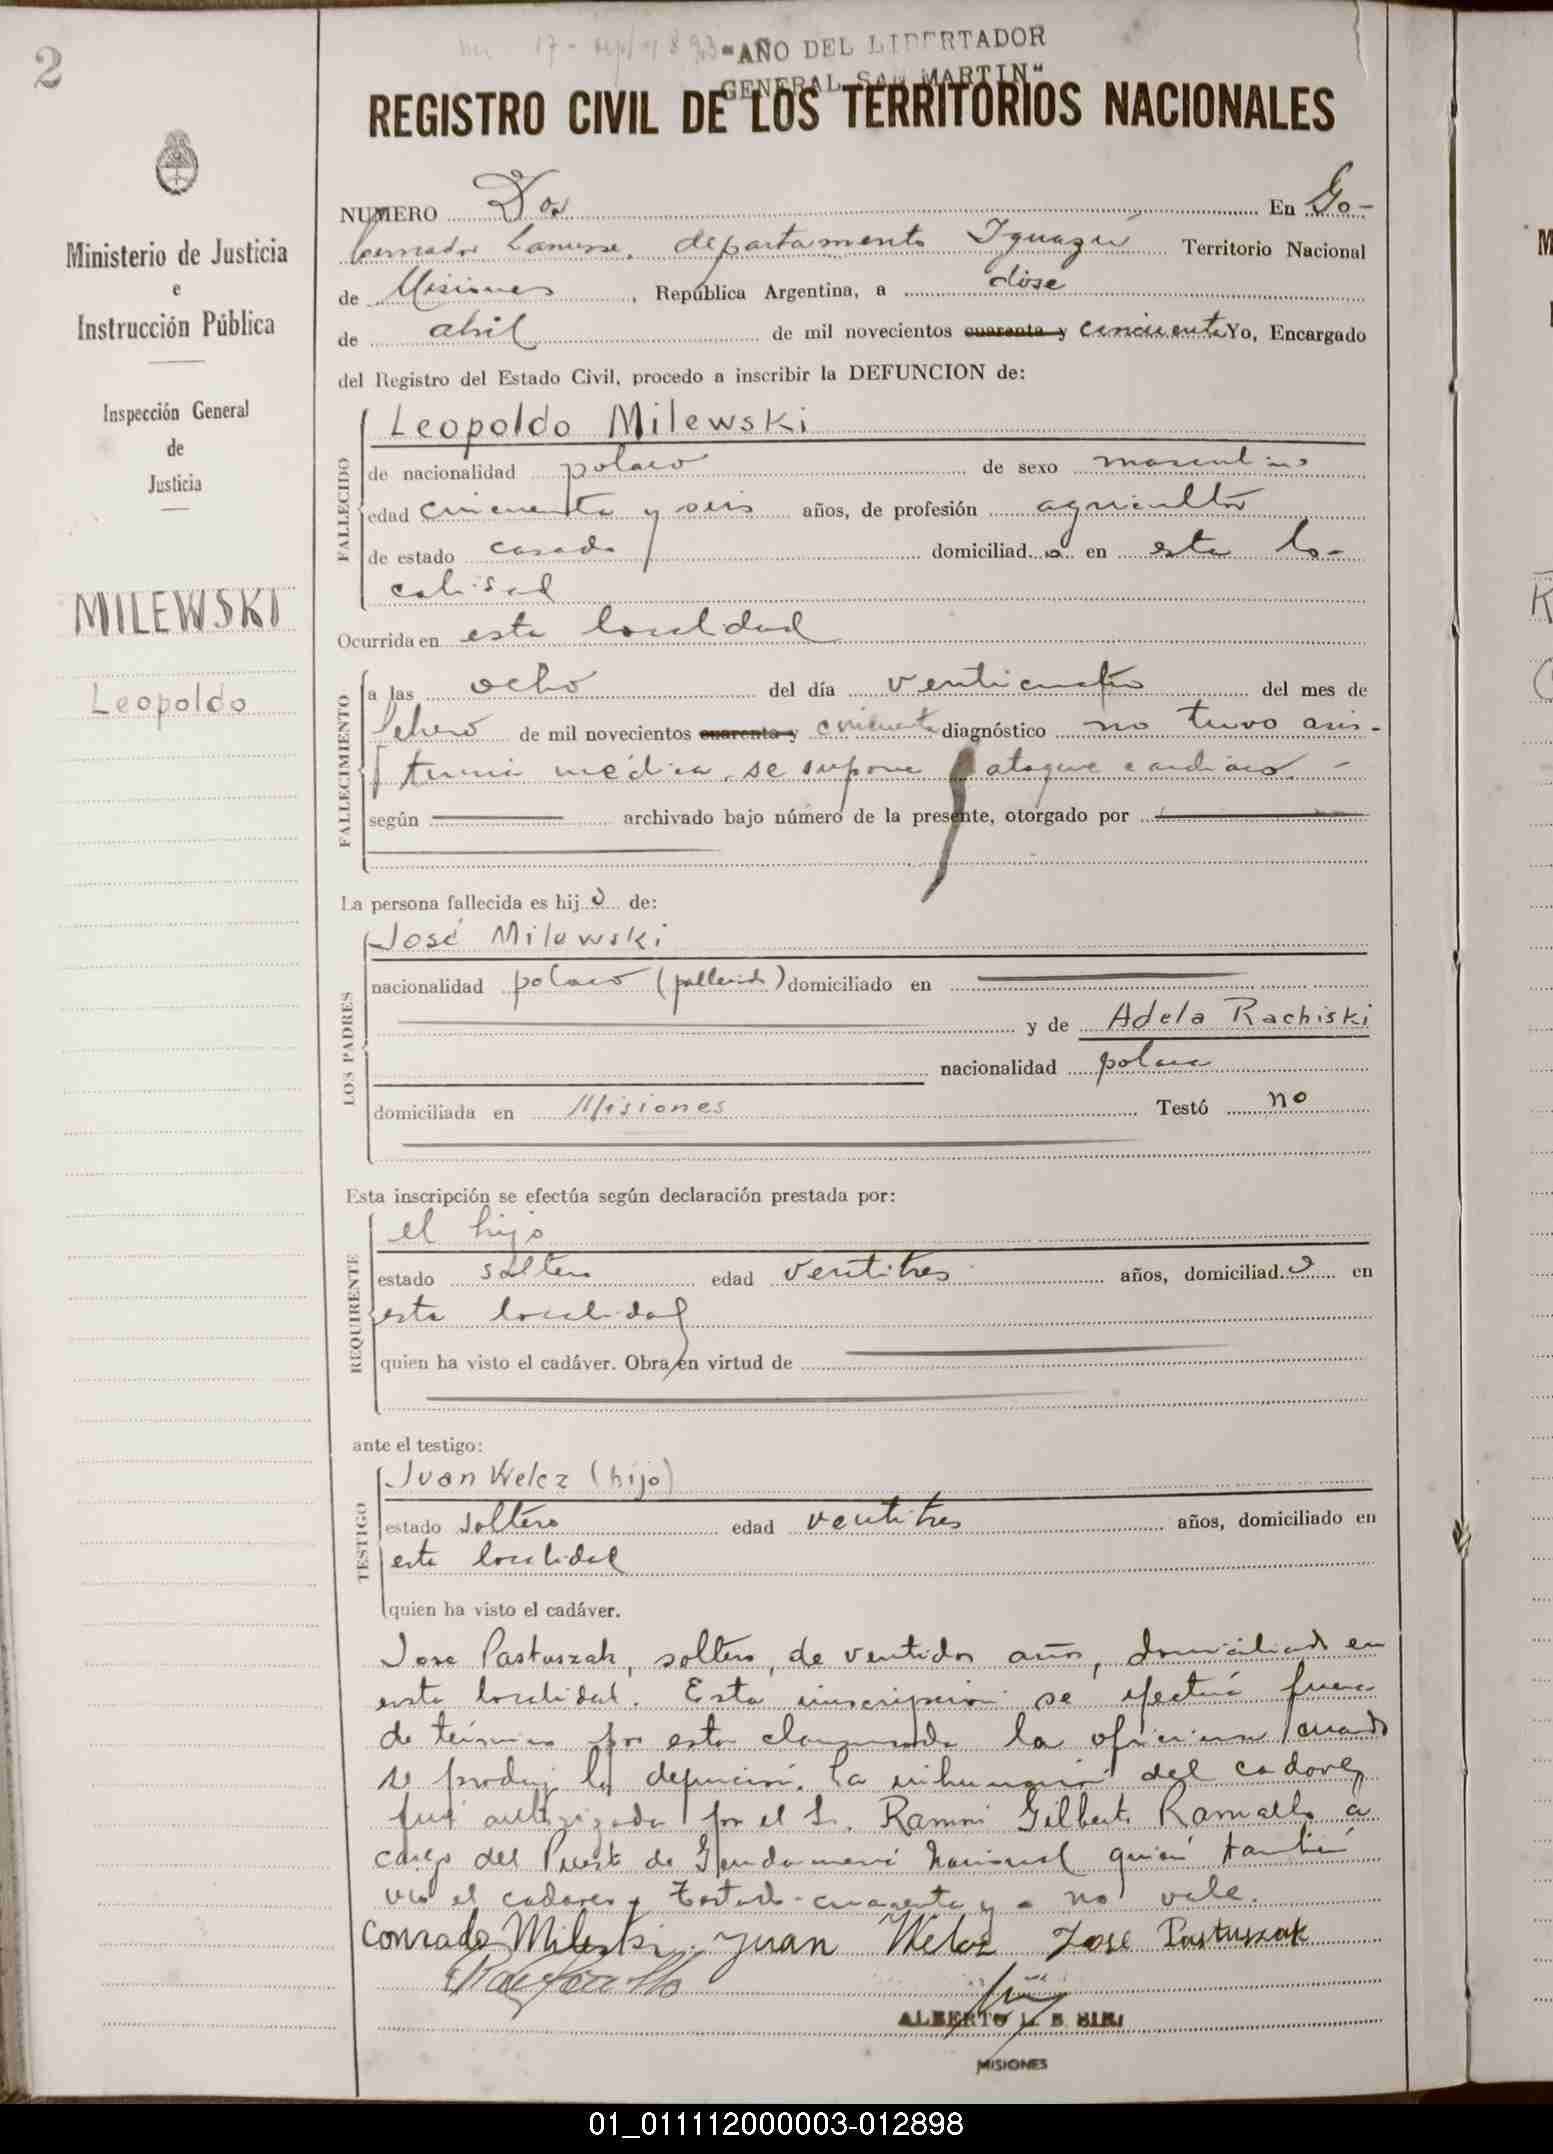 2
"AÑO DEL LIBERTADOR
GENERAL SAN MARTIN"
REGISTRO CIVIL DE LOS TERRITORIOS NACIONALES
Ministerio de Justicia
e
Instrucción Pública
Inspección General
de
Justicia
MILEWSKI
Leopoldo
NUMERO Dos En Go-
bernador Lanusse, departamento Iguazú Territorio Nacional
de Misiones, República Argentina, a dose
de abril de mil novecientos cuarenta y cincuenta Yo, Encargado
del Registro del Estado Civil, procedo a inscribir la DEFUNCION de:
FALLECIDO
Leopoldo Milewski
de nacionalidad polaco de sexo masculino
edad cincuenta y seis años, de profesión agricultor
de estado casado domiciliado en esta lo-
calidad
Ocurrida en esta localidad
FALLECIMIENTO
a las ocho del día venticuatro del mes de
febrero de mil novecientos cuarenta y cincuenta diagnóstico no tuvo asis-
tencia médica, se supone ataque cardiaco.
según archivado bajo número de la presente, otorgado por
La persona fallecida es hijo de:
LOS PADRES
José Milewski
nacionalidad polaco (fallecido) domiciliado en
y de Adela Rachiski
nacionalidad polaca
domiciliada en Misiones Testó no
Esta inscripción se efectúa según declaración prestada por:
REQUIRENTE
el hijo
estado soltero edad ventitres años, domiciliado en
esta localidad
quien ha visto el cadáver. Obra en virtud de
ante el testigo:
TESTIGO
Juan Welcz (hijo)
estado soltero edad ventitres años, domiciliado en
esta localidad
quien ha visto el cadáver.
Jose Pastuszak, soltero, de ventidos años, domiciliado en
esta localidad. Esta inscripcion se efectuá fuera
de término por estar clausurada la oficina cuando
se produjo la defuncion. La inhumacion del cadaver
fué autorizada por el Sr. Ramón Gilberto Ramallo a
cargo del Puesto de Gendarmeria Nacional quien también
vio el cadaver. Testado - cuarenta y - no vale.
Conrado Mileski Juan Welcz Jose Pastuszak
ALBERTO L. B.
MISIONES
01_011112000003-012898